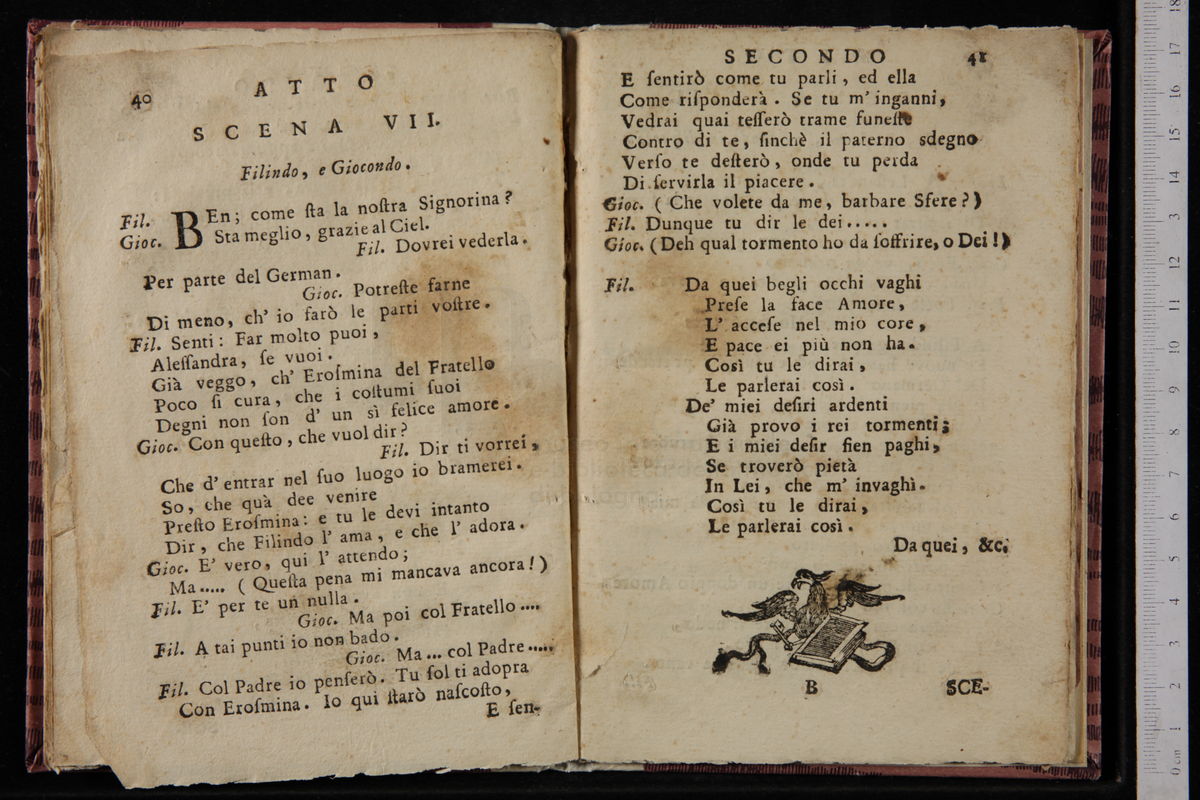 40
ATTO
SCENA VII.
Filindo, e Giocondo.
Fil. BEn; come ſta la noſtra Signorina?
Gioc. Sta meglio, grazie al Ciel.
Fil. Dovrei vederla.
Per parte del German.
Gioc. Potreſte farne
Di meno, ch' io farò le parti voſtre.
Fil. Senti: Far molto puoi,
Aleſſandra, ſe vuoi.
Già veggo, ch' Eroſmina del Fratello
Poco ſi cura, che i coſtumi ſuoi
Degni non ſon d' un sì felice amore.
Gioc. Con queſto, che vuol dir?
Fil. Dir ti vorrei,
Che d' entrar nel ſuo luogo io bramerei.
So, che quà dee venire
Preſto Eroſmina: e tu le devi intanto
Dir, che Filindo l' ama, e che l' adora.
Gioc. E' vero, qui l' attendo;
Ma..... (Queſta pena mi mancava ancora!)
Fil. E' per te un nulla.
Gioc. Ma poi col Fratello....
Fil. A tai punti io non bado.
Gioc. Ma... col Padre.....
Fil. Col Padre io penſerò. Tu ſol ti adopra
Con Eroſmina. Io qui ſtarò naſcoſto,
E ſen-
SECONDO 41
E ſentirò come tu parli, ed ella
Come riſponderà. Se tu m' inganni,
Vedrai quai teſſerò trame funeſte
Contro di te, finchè il paterno sdegno
Verſo te deſterò, onde tu perda
Di ſervirla il piacere.
Gioc. (Che volete da me, barbare Sfere?)
Fil. Dunque tu dir le dei.....
Gioc. (Deh qual tormento ho da ſoffrire, o Dei!)
Fil. Da quei begli occhi vaghi
Preſe la face Amore,
L' acceſe nel mio core,
E pace ei più non ha.
Così tu le dirai,
Le parlerai così.
De' miei deſiri ardenti
Già provo i rei tormenti;
E i miei deſir ſien paghi,
Se troverò pietà
In Lei, che m' invaghì.
Così tu le dirai,
Le parlerai così.
Da quei, &c.
B SCE-